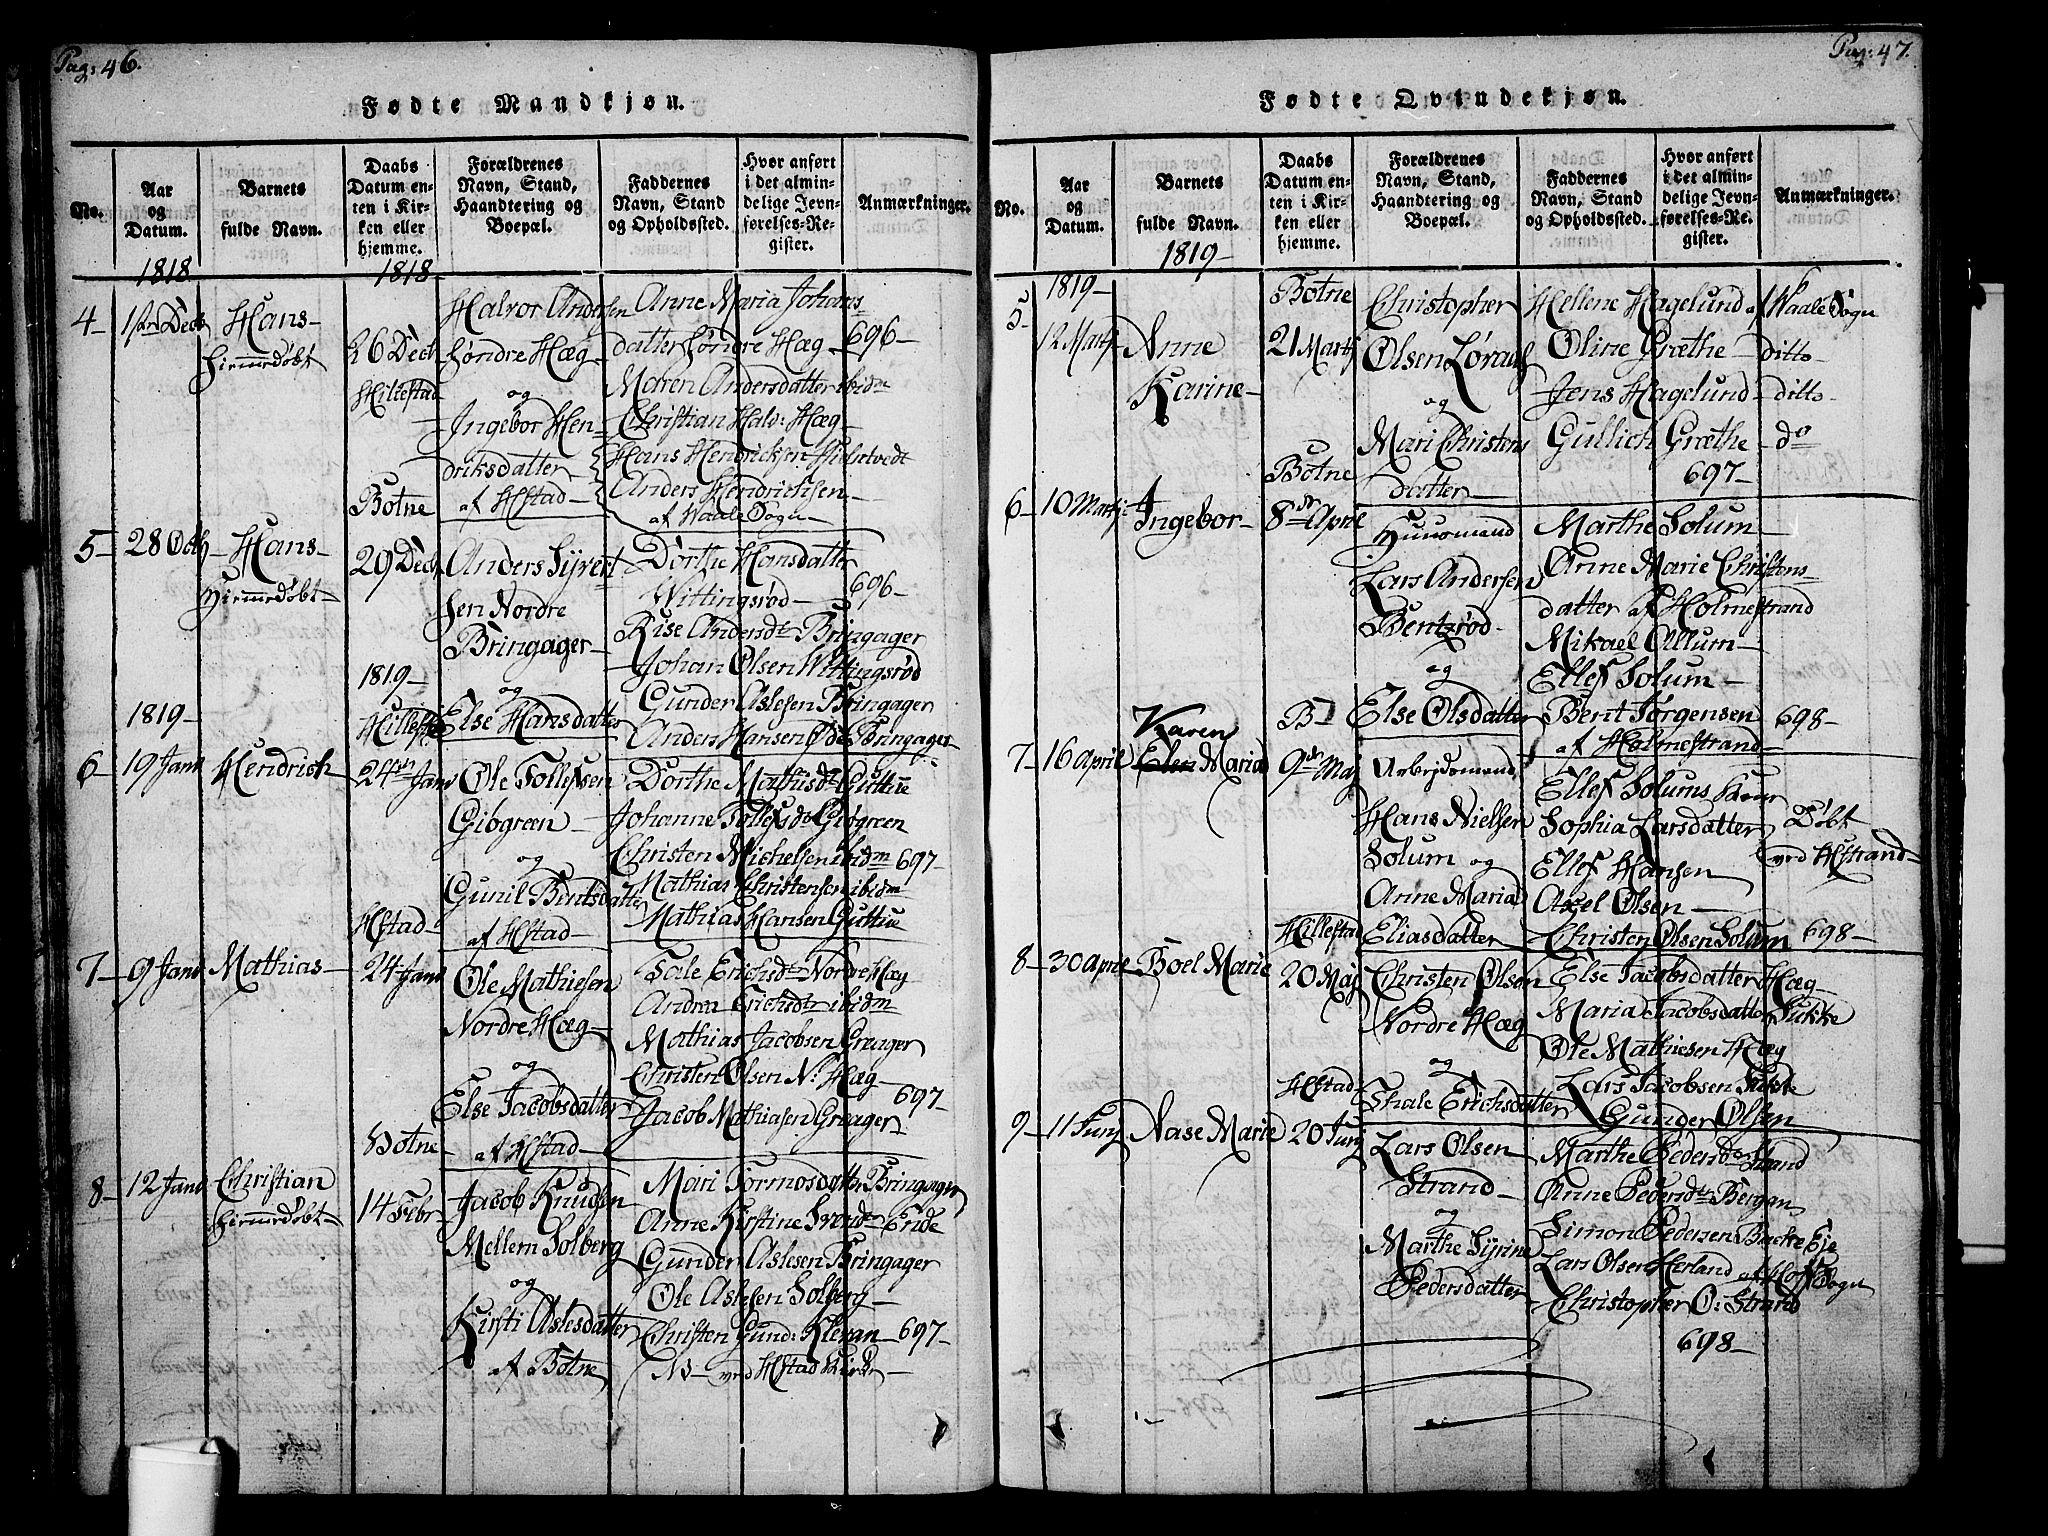 Pag: 46.
Fødte Mandkjøn.
No.
Aar og Datum.
Barnets fulde Navn.
Daabs Datum enten i Kirken eller hjemme.
Forældrenes Navn, Stand, Haandtering og Boepæl.
Faddernes Navn, Stand og Opholdssted.
Hvor anført i det almindelige Jevnførelses-Register.
Anmærkninger.
1818
1818
4 1ste Decb
Hans
hiemmedøbt
26 Decb
Hillestad
Halvor Andersen
Søndre Hæg
og
Ingebor Hen
driksdatter
af Hstad
Anne Maria Johans
datter Søndre Hæg
Maren Andersdatter ibidm
Christian Halv: Hæg
Hans Hendricksen
Anders Hendrichsen
af Waale Sogn
696
Botne
5 28 Octb
Hans
Hiemmedøbt
29 Decb
Anders Syvert
sen Nordre
Bringager
og
Else Hansdatter
Dorthe Hansdatter
Wittingsrød
Rise Andersdtr Bringager
Johan Olsen Wittingsrød
Gunder Aslesen Bringager
Anders Hansen Bringager
696
1819
1819
6 19 Janv
Hendrich
24 Janv
Ole Tollefsen
Giøgreen
og
Gunil Bentsdatter
af Hstad
Dorthe Mathisdtr Guttue
Johanne Tollefsdr Giøgreen
Christen Michelsen ibidm
Mathias Christensen ibidm
Mathias Hansen Guttue
697
Hstad
7 9 Janv
Mathias
24 Janv
Ole Mathiesen
Nordre Hæg
og
Else Jacobsdatter
af Hstad
Tale Erichsdtr Nordre Hæg
Andrea Erichsdtr ibidm
Mathias Jacobsen Greager
Christen Olsen N: Hæg
Jacob Mathiasen Greager
697
Botne
8 12 Janv
Christian
hiemmedøbt
14 Febr
Jacob Knudsen
Mellem Solberg
og
Kirsti Aslesdatter
af Botne
Mari Tormosdatter Bringager
Anne Kirstine Ende
Gunder Aslesen Bringager
Ole Aslesen Solberg
Christen Gund: Klevan
ved Hstad Kirke
697
Pag: 47.
Fødte Qvindekjøn.
No.
Aar og Datum.
Barnets fulde Navn.
Daabs Datum enten i Kirken eller hjemme.
Forældrenes Navn, Stand, Haandtering og Boepæl.
Faddernes Navn, Stand og Opholdssted.
Hvor anført i det almindelige Jevnførelses-Register.
Anmærkninger.
1819
1819
Botne
5
12 Martj
Anne
Karine
21 Martj
Christopher
Olsen
og
Mari Christens
datter
Hellene Hagelund af Waale Sogn
Oline Græthe ditto
Jens Hagelund ditto
Gullich Græthe do
697
Botne
6 10 Martj
Ingebor
8de April
Huusmand
Lars Andersen
Bentsrød
og
Else Olsdatter
Marthe Solum
Anne Marie Christens
datter af Holmestrand
Mikael Ollum
Ellef Solum
Bent Jørgensen
af Holmestrand
698
B
7 16 April
Karen
Elen Maria
9de Maj
Arbejdsmand
Hans Nielsen
Solum og
Anne Maria
Eliasdatter
Ellef Solums Kone
Sophia Larsdatter
Ellef Hansen
Axel Olsen
Christen Olsen Solum
Døbt
ved Hstrand
698
Hillestad
8 30 April
Boel Marie
20 Maj
Christen Olsen
Nordre Hæg
og
Thale Erichsdatter
Else Jacobsdatter Hæg
Maria Jacobsdatter Sukke
Ole Mathiesen Hæg
Lars Jacobsen Sukke
Gunder Olsen
Hstad
9 11 Junj
Aase Marie
20 Junj
Lars Olsen
Strand
og
Marthe Syrine
Pedersdatter
Marthe Pedersdr Strand
Anne Pedersdtr Bergan
Simon Pedersen Backe Eje
Lars Olsen Herland af Hof Sogn
Christopher O: Strand
698